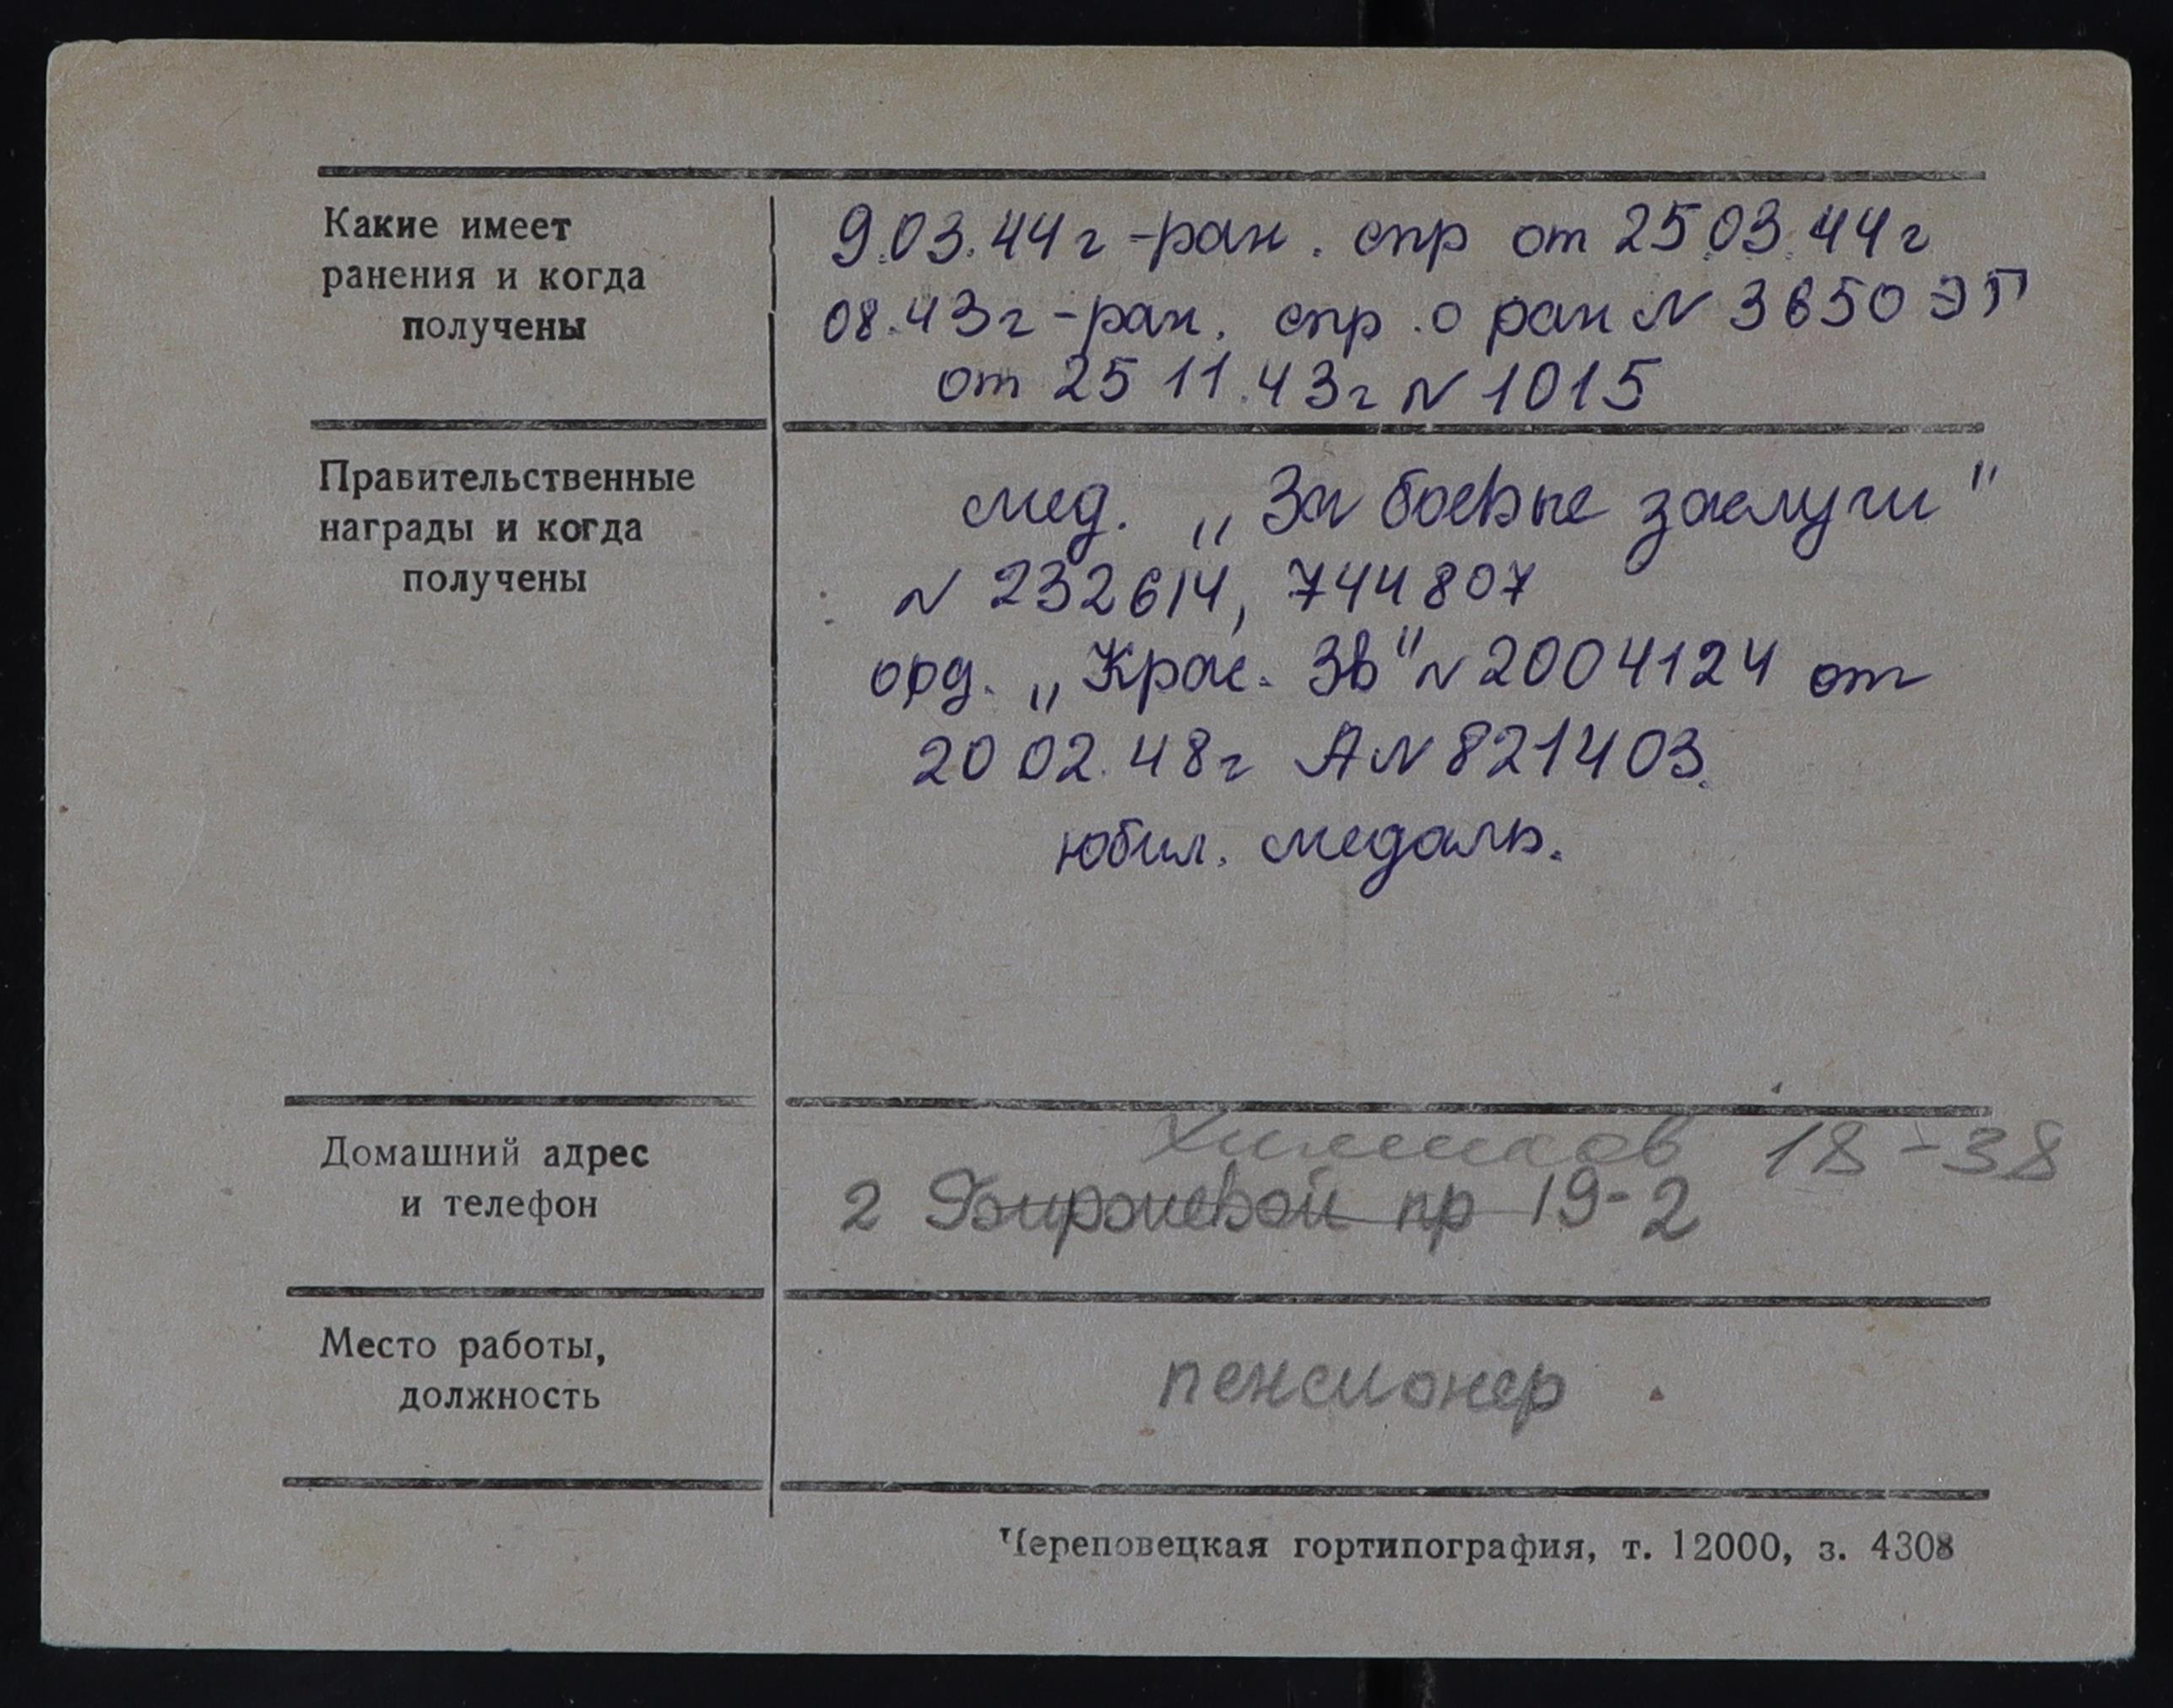 Какие имеет
ранения и когда
получены
9.03.44г -ран. спр от 25.03.44г
08.43г -ран. спр. о ран N 3650 ЭП
от 25 11.43г N 1015
Правительственные
награды и когда
получены
мед. „За боевые заслуги"
N 232614, 744807
орд. „Крас. Зв" N 2004124 от
20 02.48г А N 821403.
юбил. медаль.
Домашний адрес
и телефон
Химиков 18-38
2 Бирюевой пр 19-2
Место работы,
должность
пенсионер
Череповецкая гортипография, т. 12000, з. 4308